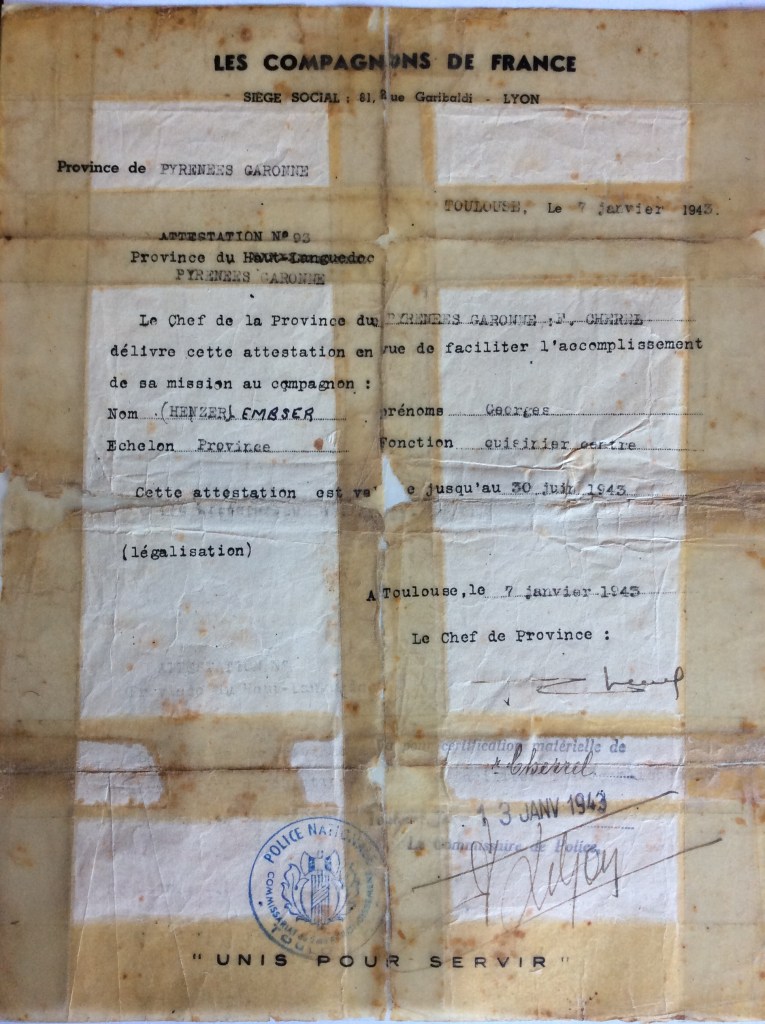 LES COMPAGNONS DE FRANCE
SIÈGE SOCIAL : 81, Rue Garibaldi - LYON
Province de PYRENEES GARONNE
TOULOUSE, Le 7 janvier 1943.
ATTESTATION N° 93
Province du Haut-Languedoc
PYRENEES GARONNE
Le Chef de la Province du PYRENEES GARONNE : F. CHEREL
délivre cette attestation en vue de faciliter l'accomplissement
de sa mission au compagnon :
Nom (HENZER) EMBSER prénoms Georges
Echelon Province Fonction cuisinier centre
Cette attestation est va e jusqu'au 30 juin 1943
(légalisation)
A Toulouse, le 7 janvier 1943
Le Chef de Province :
ATTESTATION N°
Province du Haut-Languedoc
Vu pour certification matérielle de
Cherrel
13 JANV 1943
Le Commissaire de Police,
POLICE NATIONALE
COMMISSARIAT
TOUL
"UNIS POUR SERVIR"